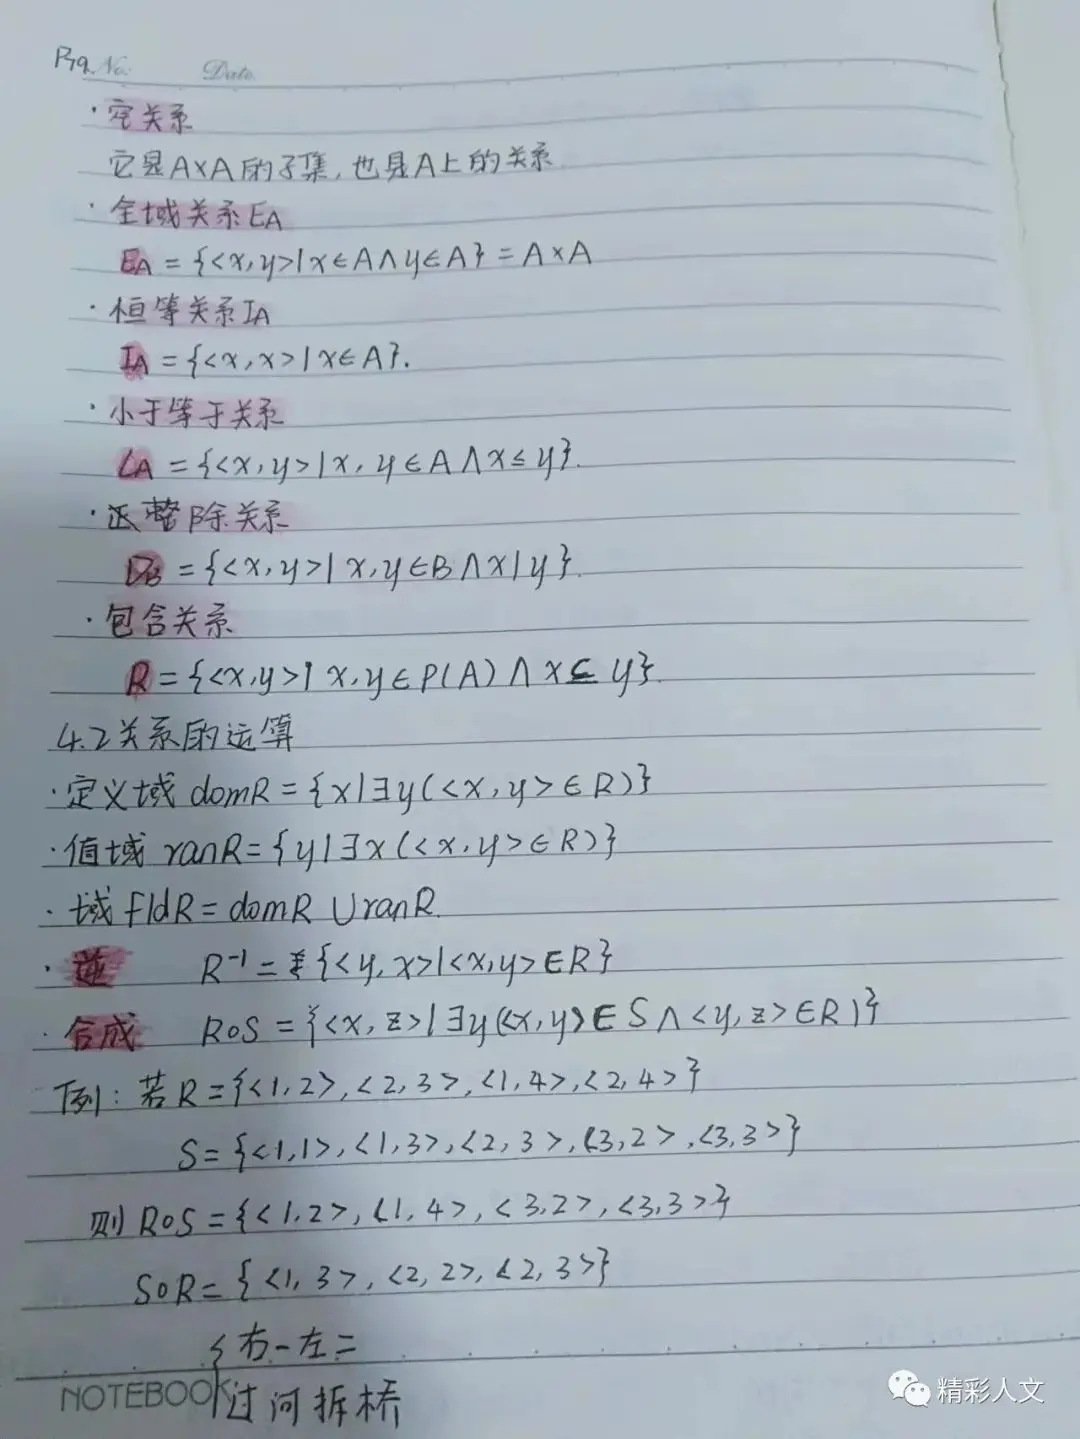 P79. No. Date.
·空关系
它是A×A的子集,也是A上的关系
·全域关系EA
EA={<x,y>|x∈A∧y∈A}=A×A
·恒等关系IA
IA={<x,x>|x∈A}.
·小于等于关系
LA={<x,y>|x,y∈A∧x≤y}.
·整除关系
DB={<x,y>|x,y∈B∧x|y}.
·包含关系
R={<x,y>|x,y∈P(A)∧x⊆y}.
4.2关系的运算
·定义域 domR={x|∃y(<x,y>∈R)}
·值域 ranR={y|∃x(<x,y>∈R)}
·域 fldR=domR∪ranR.
·逆 R⁻¹={<y,x>|<x,y>∈R}
·合成 R∘S={<x,z>|∃y(<x,y>∈S∧<y,z>∈R)}
例:若R={<1,2>,<2,3>,<1,4>,<2,4>}
S={<1,1>,<1,3>,<2,3>,<3,2>,<3,3>}
则R∘S={<1,2>,<1,4>,<3,2>,<3,3>}
S∘R={<1,3>,<2,2>,<2,3>}
右一左二
NOTEBOOK 过河拆桥
精彩人文